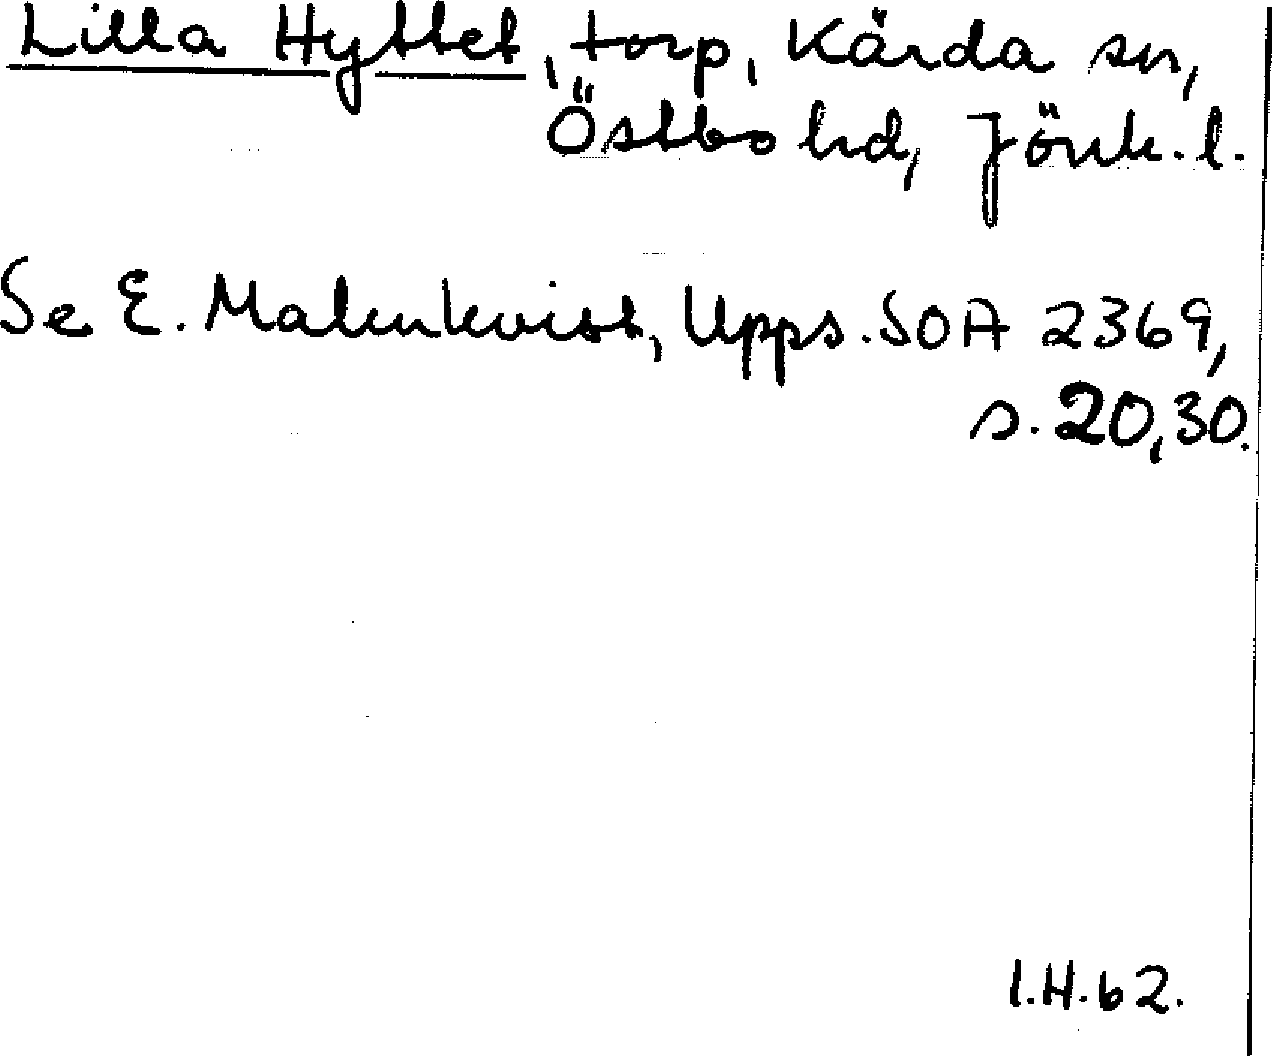 Lilla Hyttet, torp, Kärda sn,
Östbo hd, Jönk. l.
Se E. Malmkvist, Upps. SOA 2369,
s. 20, 30.
I.H.62.